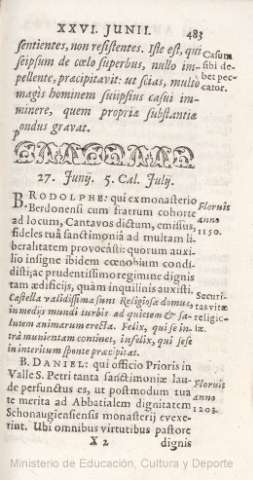 XXVI. JUNII. 483
sentientes, non resistentes. Iste est, qui
seipsum de cœlo superbus, nullo im-
pellente, præcipitavit: ut scias, multo
magis hominem suiipsius casui im-
minere, quem propriæ substantiæ
pondus gravat.
Casum
sibi de-
bet pec-
cator.
27. Junij. 5. Cal. Julij.
B. RODOLPHE: qui ex monasterio
Berdonensi cum fratrum cohorte
ad locum, Cantavos dictum, emissus,
fideles tuâ sanctimoniâ ad multam li-
beralitatem provocâsti: quorum auxi-
lio insigne ibidem cœnobium condi-
disti; ac prudentissimo regimine dignis
tam ædificijs, quàm inquilinis auxisti.
Floruit
anno
1150.
Castella validissima sunt Religiosæ domus,
in medijs mundi turbis ad quietem & sa-
lutem animarum erecta. Felix, qui se in-
trà munientam continet, infelix, qui se se
in interitum sponte præcipitat.
Securi-
tas vitæ
religio-
sæ.
B. DANIEL: qui officio Prioris in
Valle S. Petri tanta sanctimoniæ lau-
de perfunctus es, ut postmodum tua
te merita ad Abbatialem dignitatem
Schonaugiensiensis monasterij evexe-
rint. Ubi omnibus virtutibus pastore
Floruit
anno
1203.
X 2 dignis
Ministerio de Educación, Cultura y Deporte